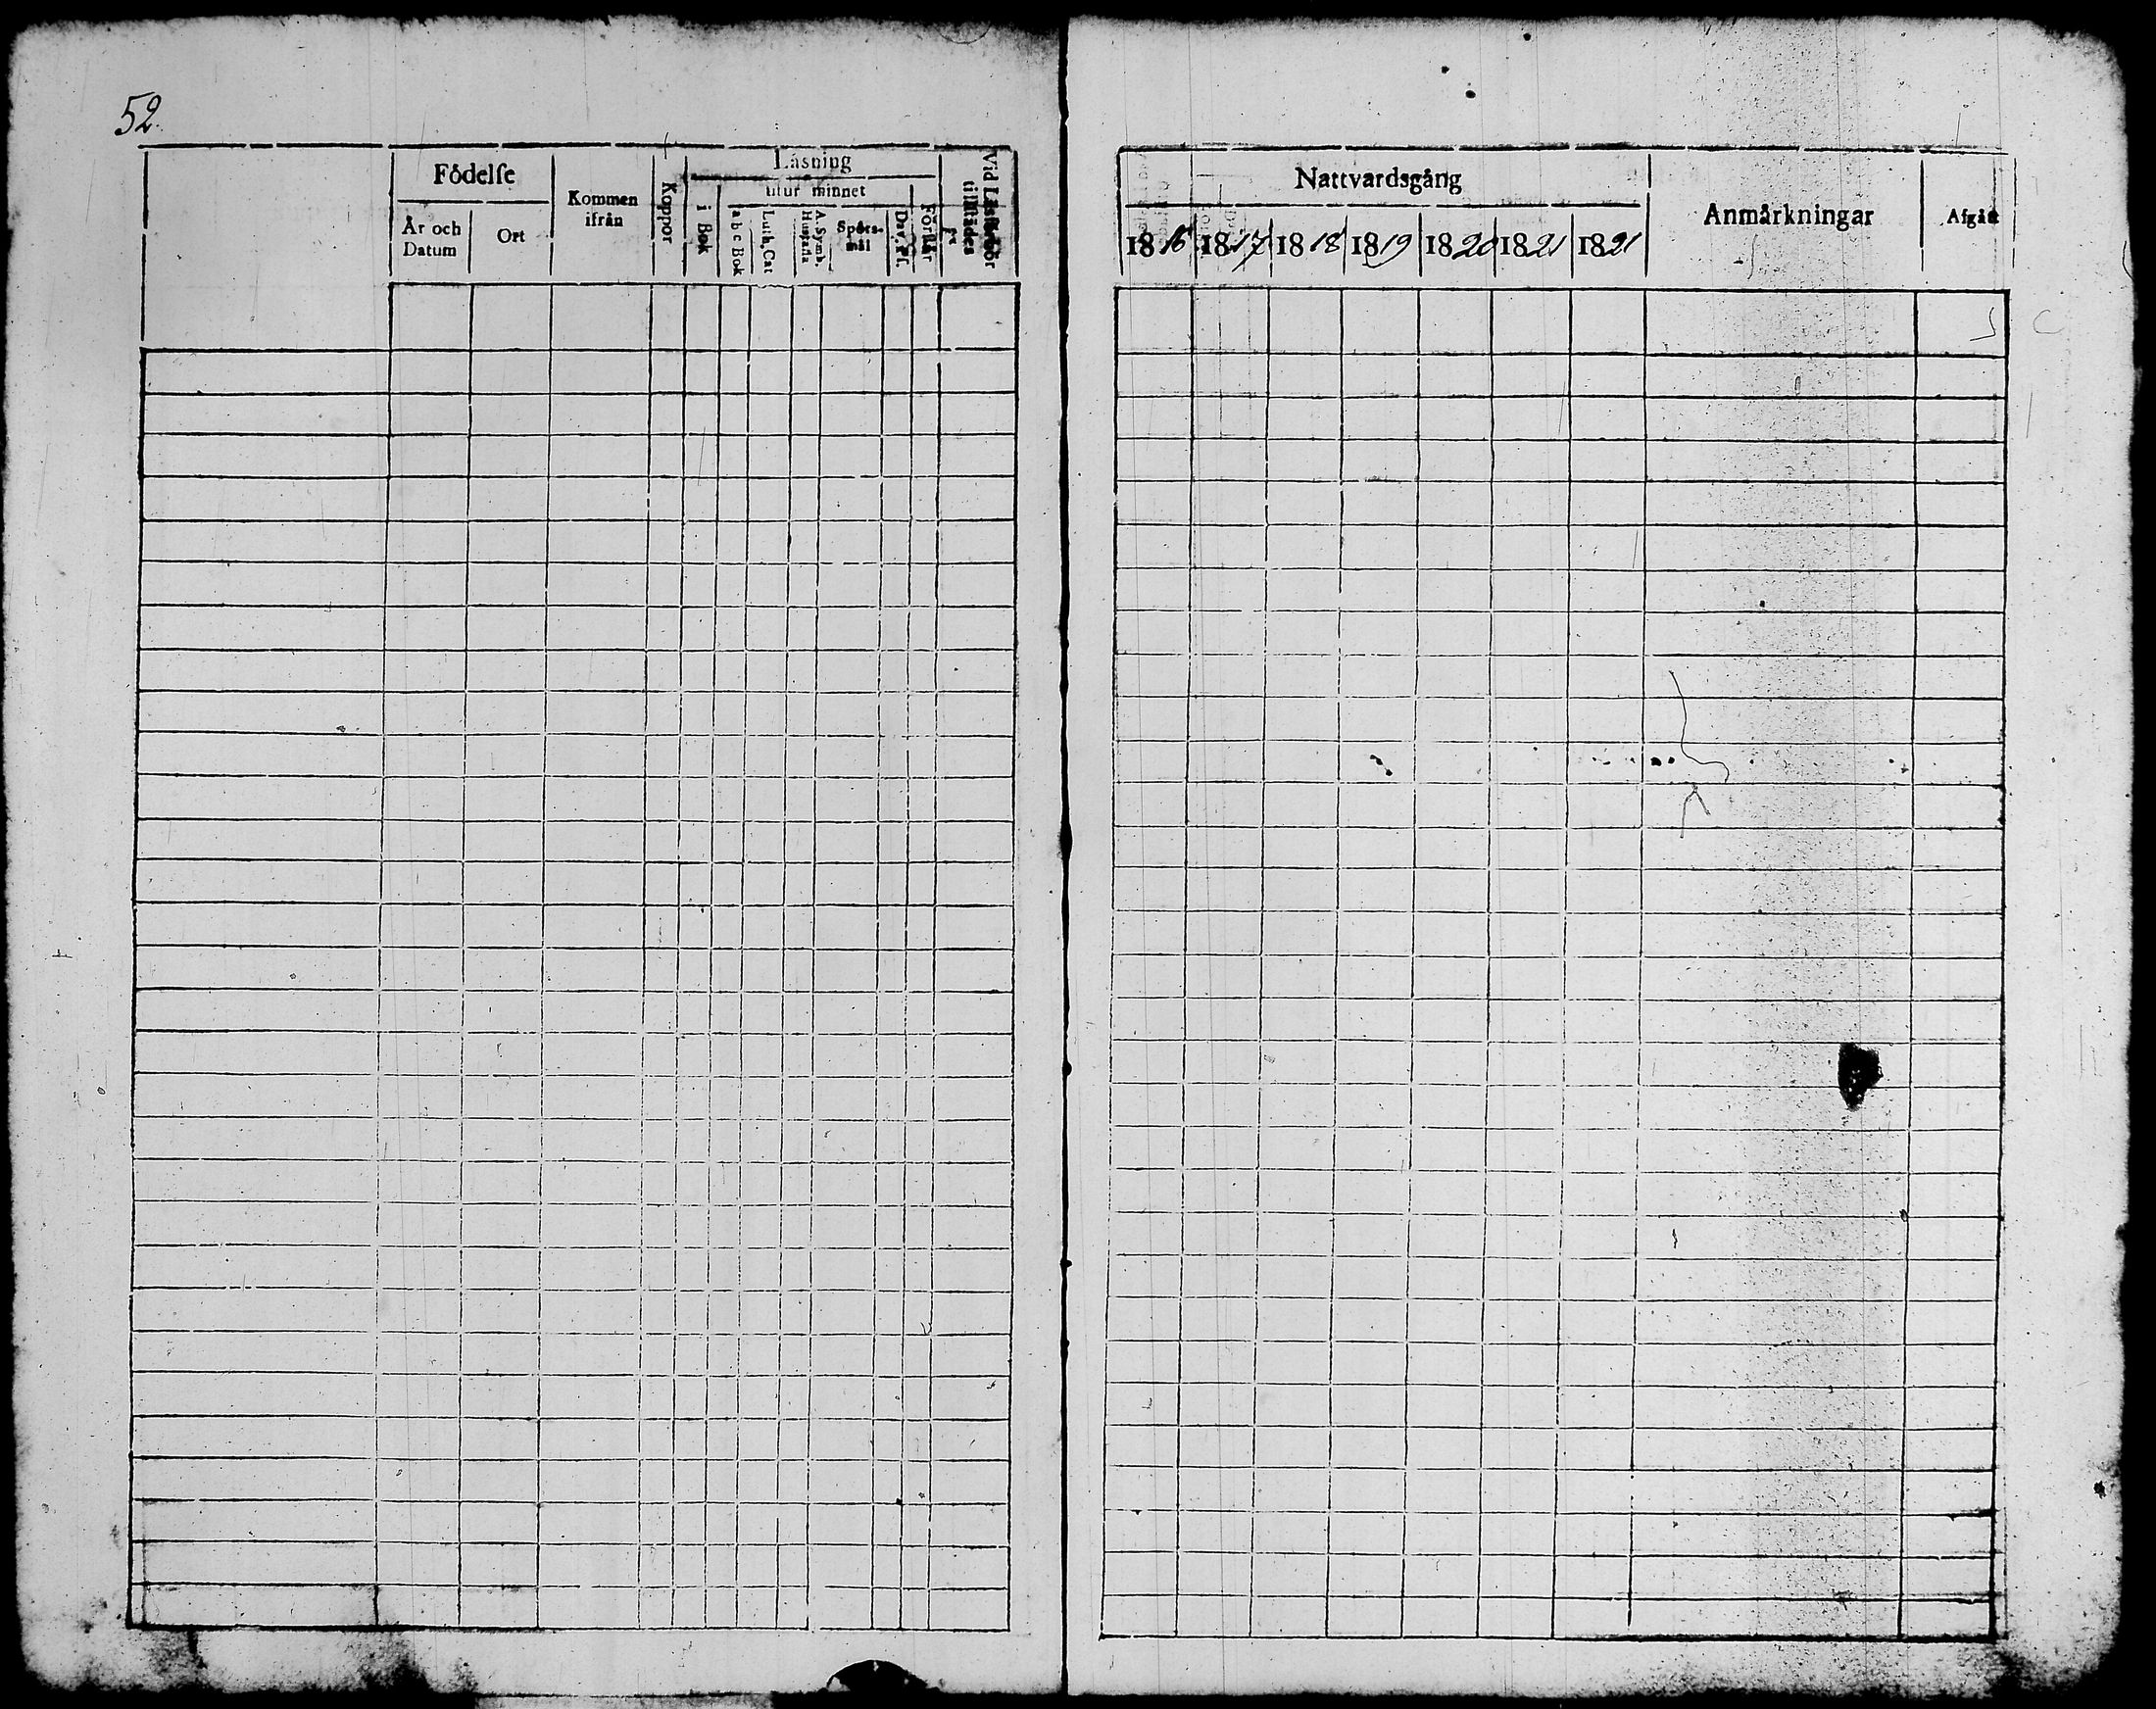 52.
Födelse
År och Datum
Ort
Kommen ifrån
Koppor
Läsning
i Bok
utur minnet
a b c Bok
Luth. Cat
A. Symb. Hustafla
Spörsmål
Dav. Ps.
Förstår
Vid Läsförhör tillstädes
Nattvardsgång
1816 1817 1818 1819 1820 1821 1821
Anmärkningar
Afgått